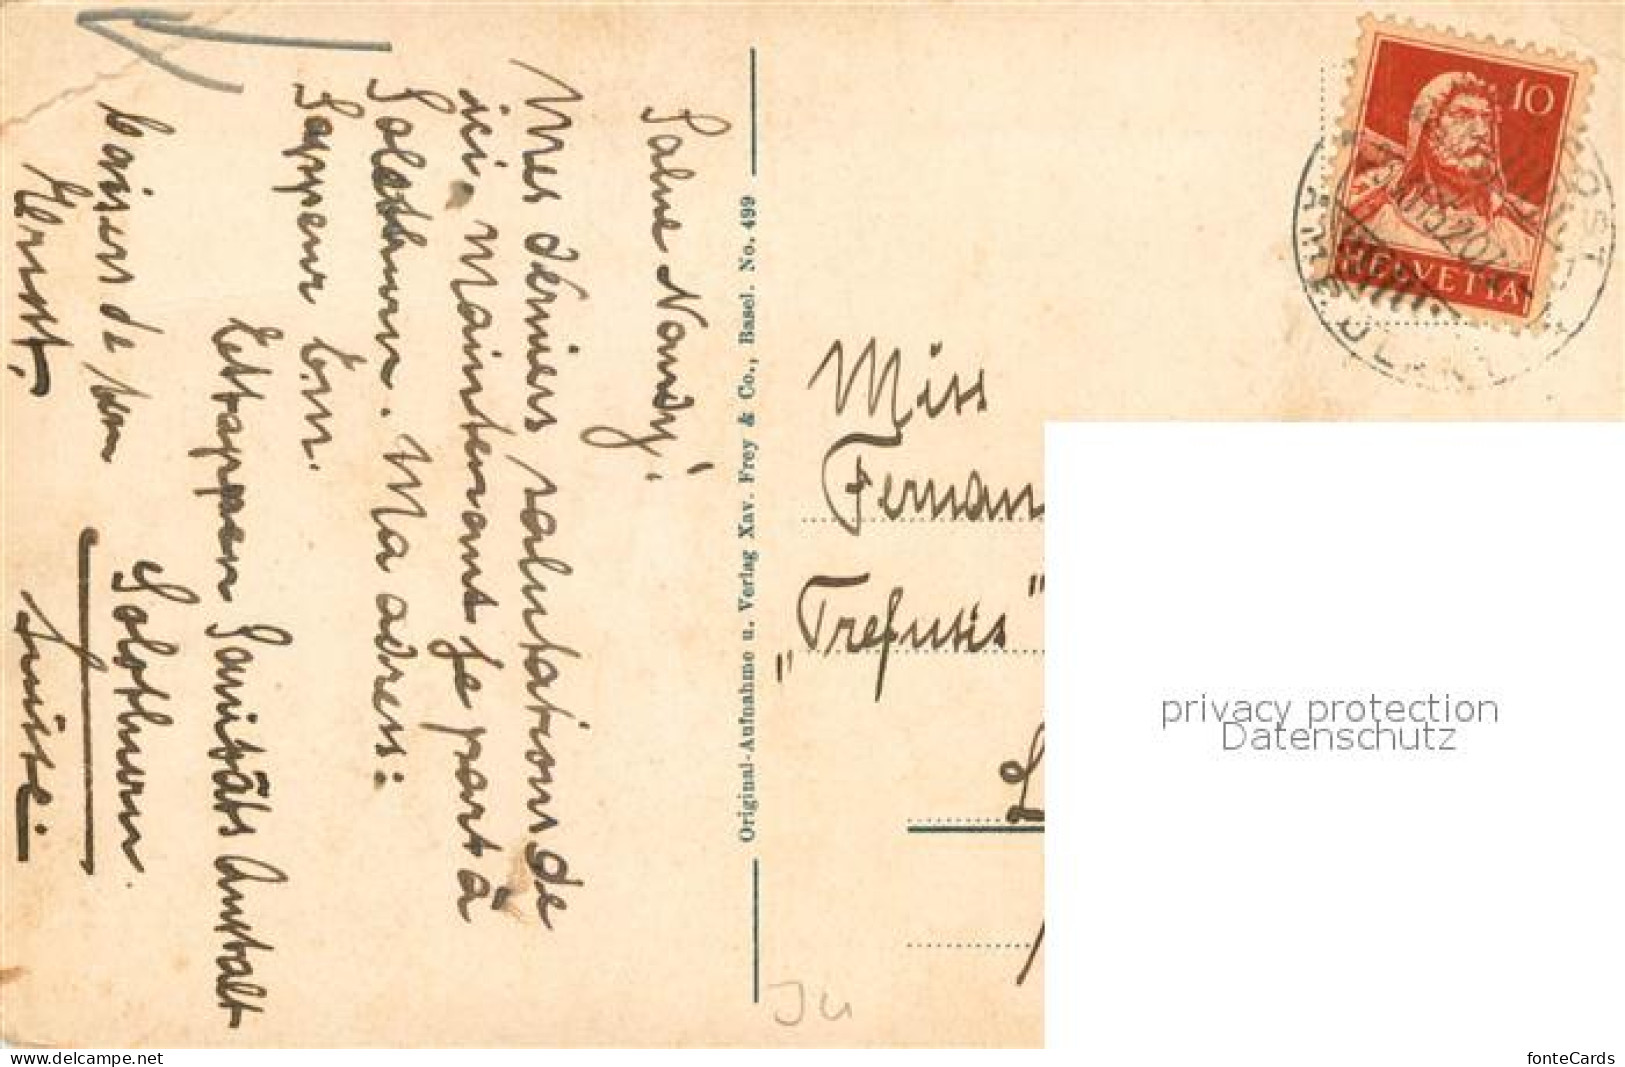 Salue Nandy!
Mes derniers salutations de
ici. Maintenant je part à
Solothurn. Ma adress:
Sappeur Ern.
Ettappen Sanitäts Anstalt
Solothurn.
baisers de ton
Ernst,
Original-Aufnahme u. Verlag Xav. Frey & Co., Basel. No. 499
10
HELVETIA
Miss
Fernan
„Trefusis"
L
privacy protection
Datenschutz
www.delcampe.net
fonteCards